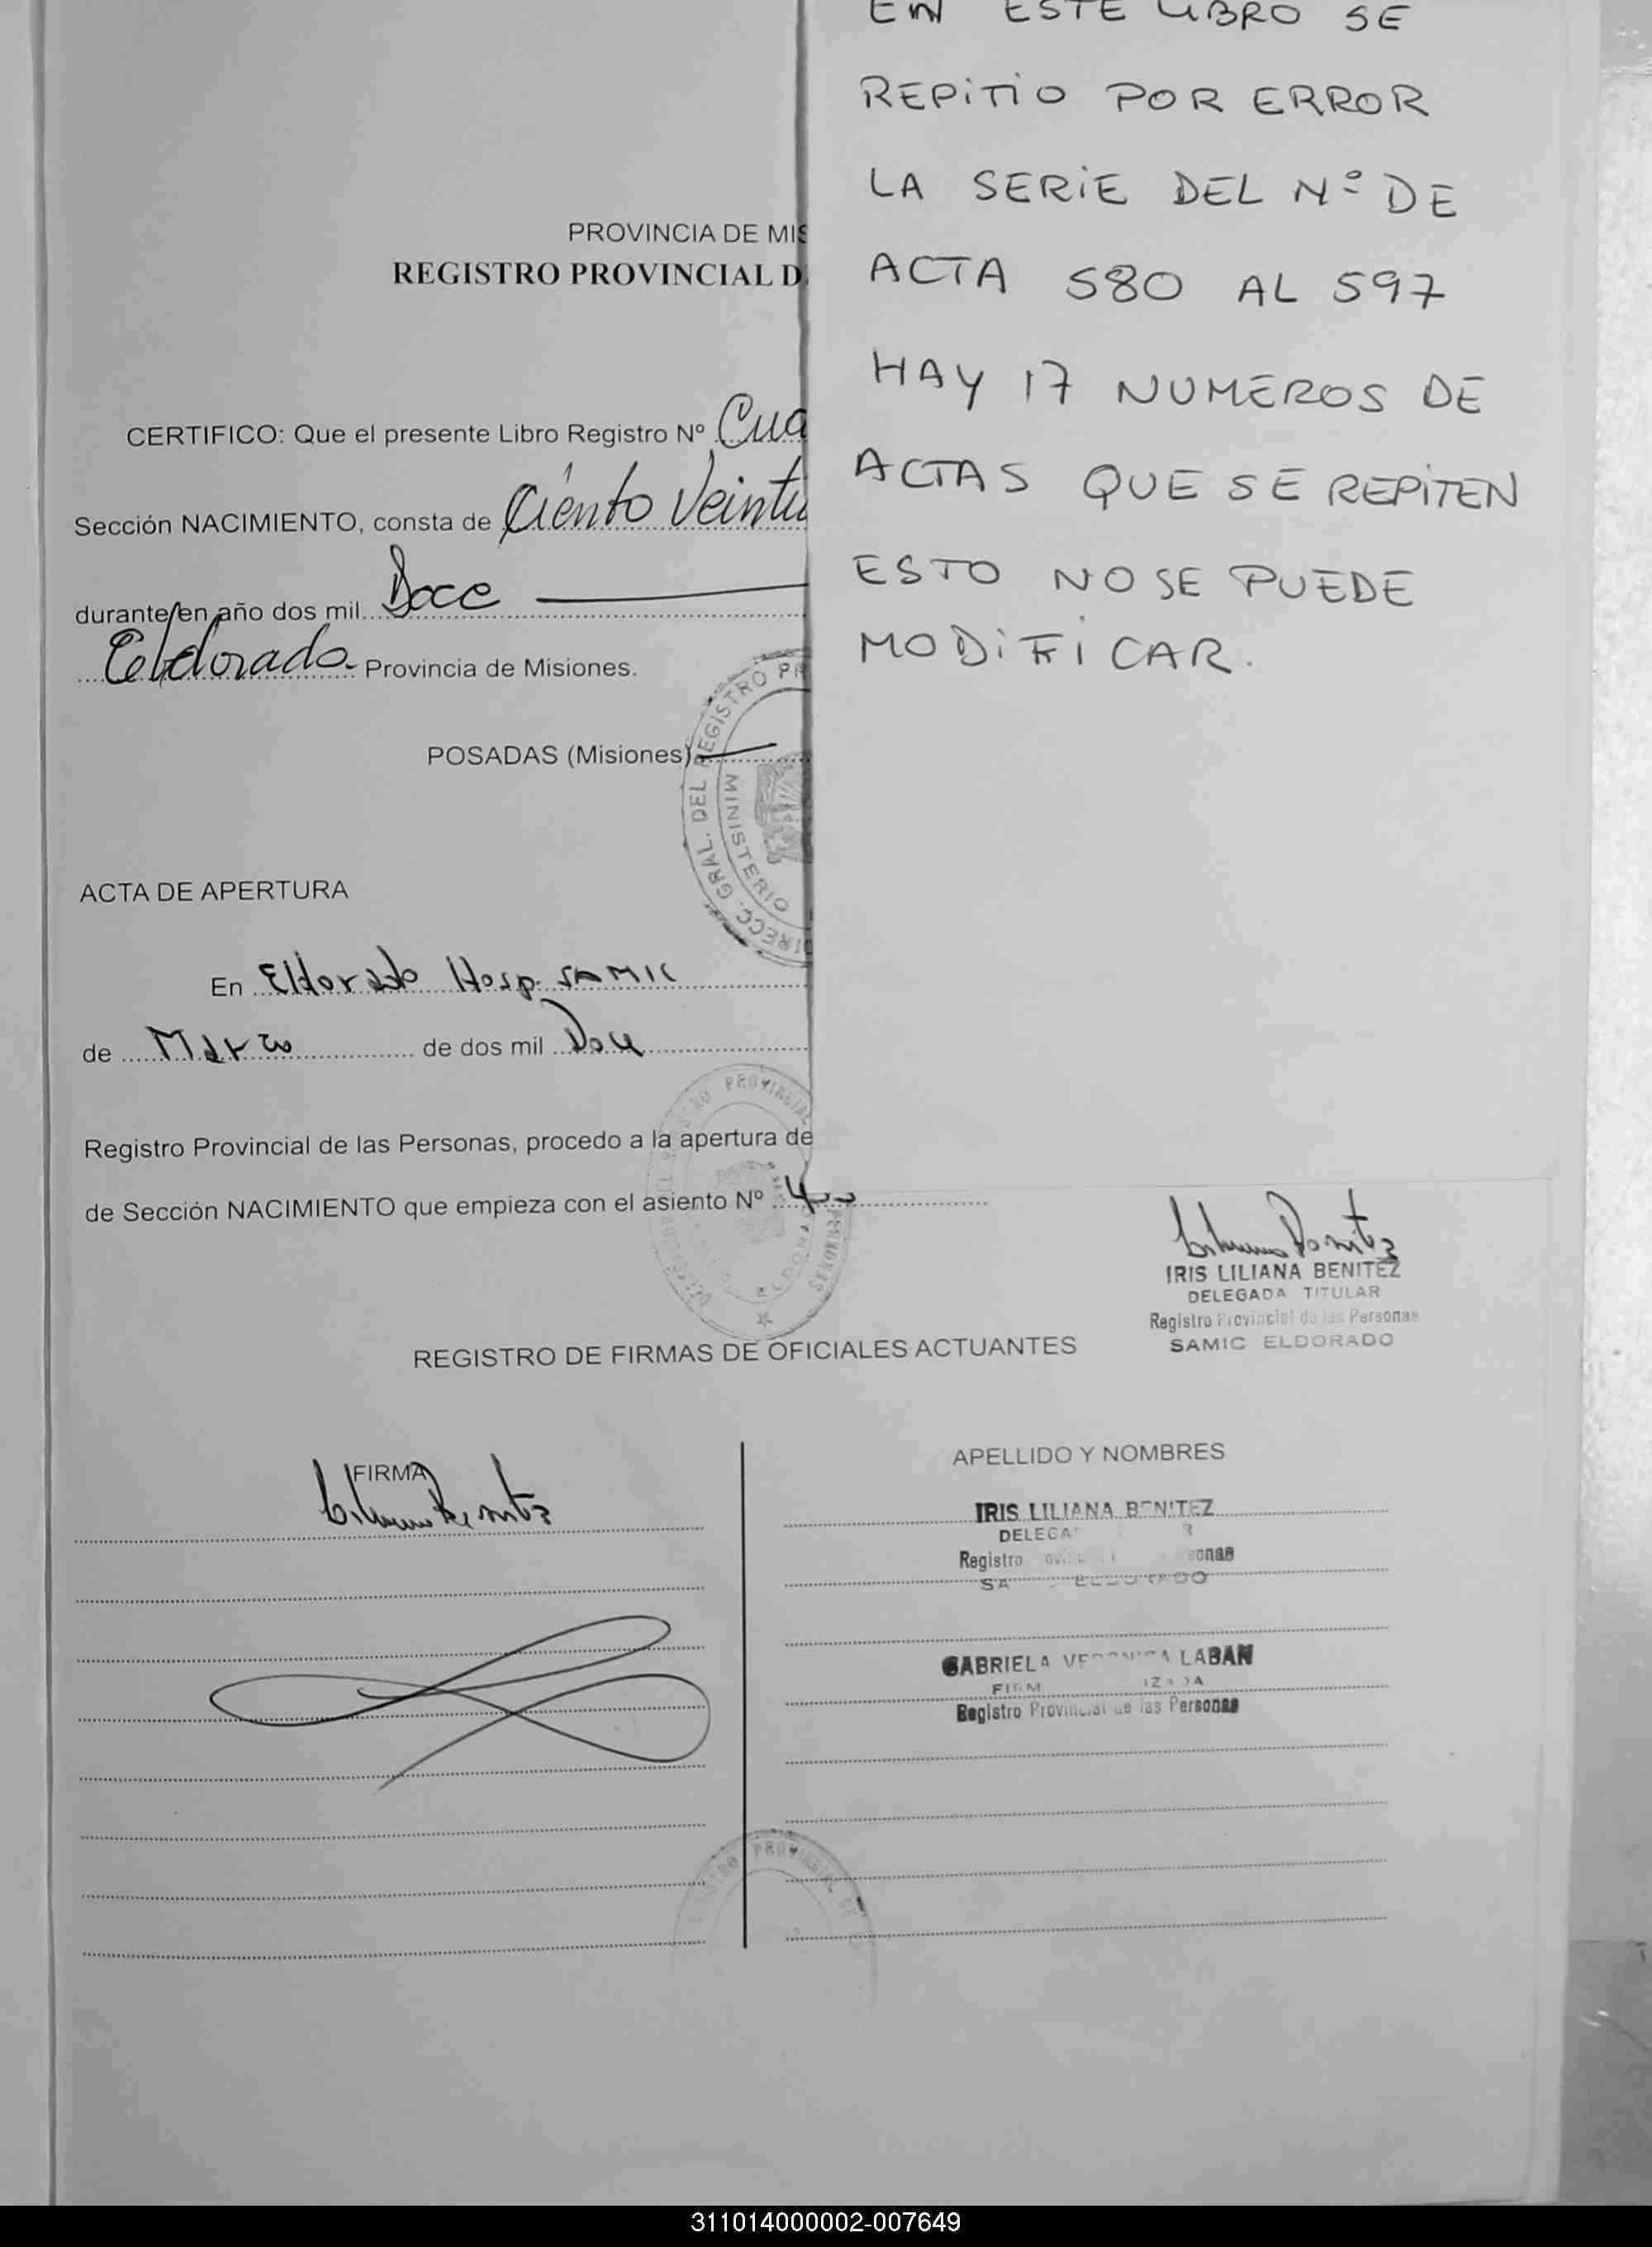 EN ESTE LIBRO SE
REPiTiO POR ERROR
LA SERiE DEL Nº DE
ACTA 580 AL 597
HAY 17 NUMEROS DE
ACTAS QUE SE REPiTEN
ESTO NO SE PUEDE
MODiFiCAR.
PROVINCIA DE MIS
REGISTRO PROVINCIAL D
CERTIFICO: Que el presente Libro Registro Nº Cua
Sección NACIMIENTO, consta de Ciento Veintu
durante/en año dos mil Doce
Eldorado Provincia de Misiones.
POSADAS (Misiones)
DIRECC. GRAL. DEL REGISTRO PR
MINISTERIO
ACTA DE APERTURA
En Eldorado Hosp. SAMIC
de Marzo de dos mil Doce
Registro Provincial de las Personas, procedo a la apertura de
de Sección NACIMIENTO que empieza con el asiento Nº 400
PROVINCIAL
PERSONAS
ELDORADO
IRIS LILIANA BENITEZ
DELEGADA TITULAR
Registro Provincial de las Personas
SAMIC ELDORADO
REGISTRO DE FIRMAS DE OFICIALES ACTUANTES
FIRMA
APELLIDO Y NOMBRES
IRIS LILIANA BENITEZ
Registro
ELDORADO
GABRIELA VERONICA LABAN
Registro Provincial de las Personas
PROVINCIAL DE
311014000002-007649